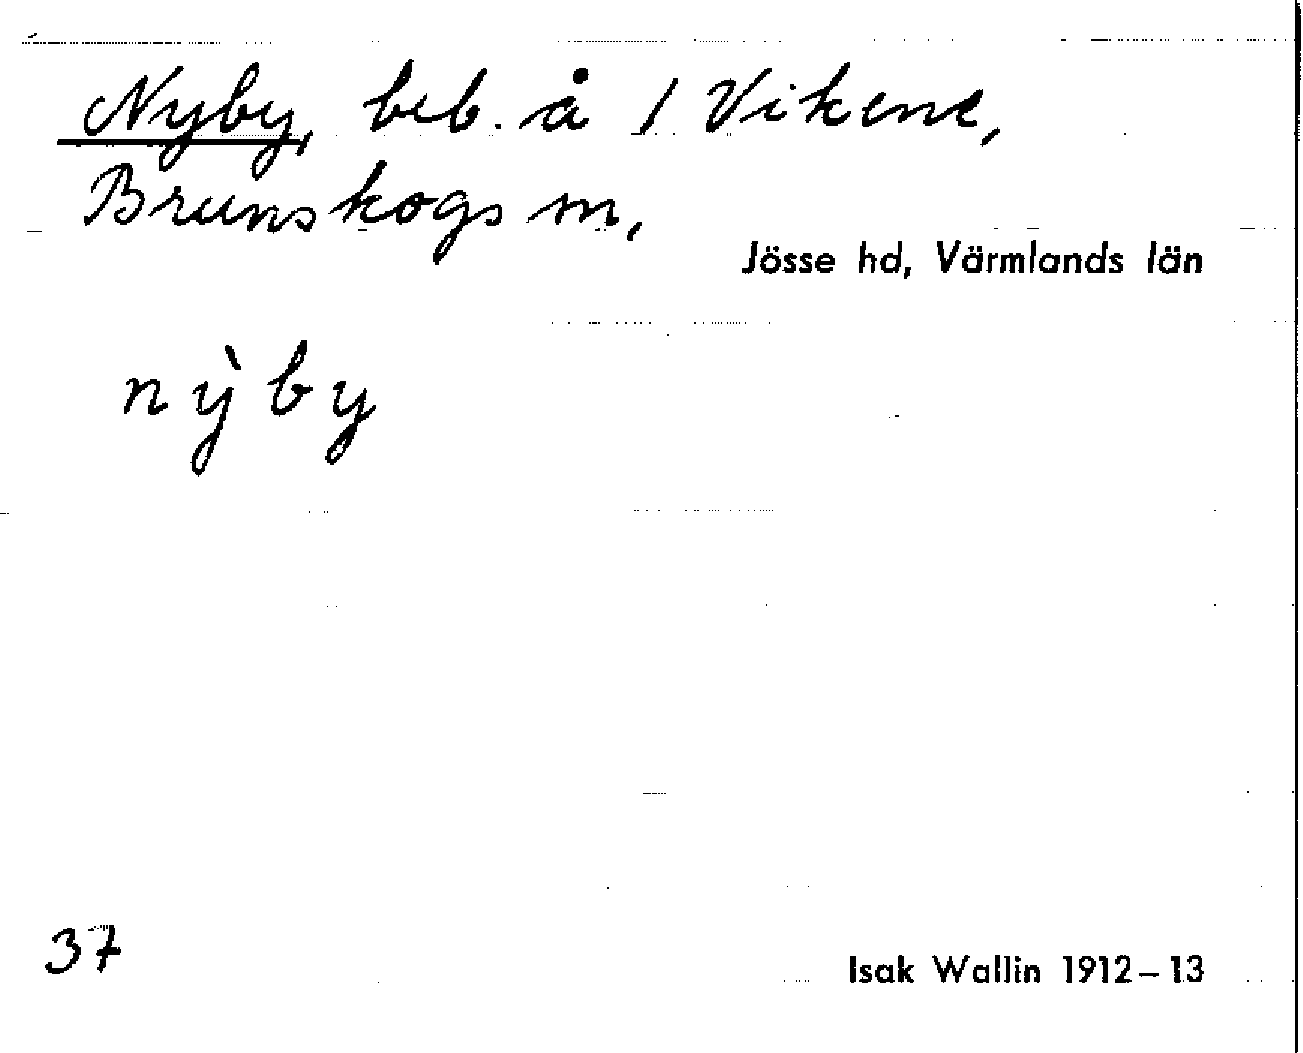 Nyby, beb. å 1 Vikene,
Brunskogs sn,
Jösse hd, Värmlands län
nỳby
37
Isak Wallin 1912–13